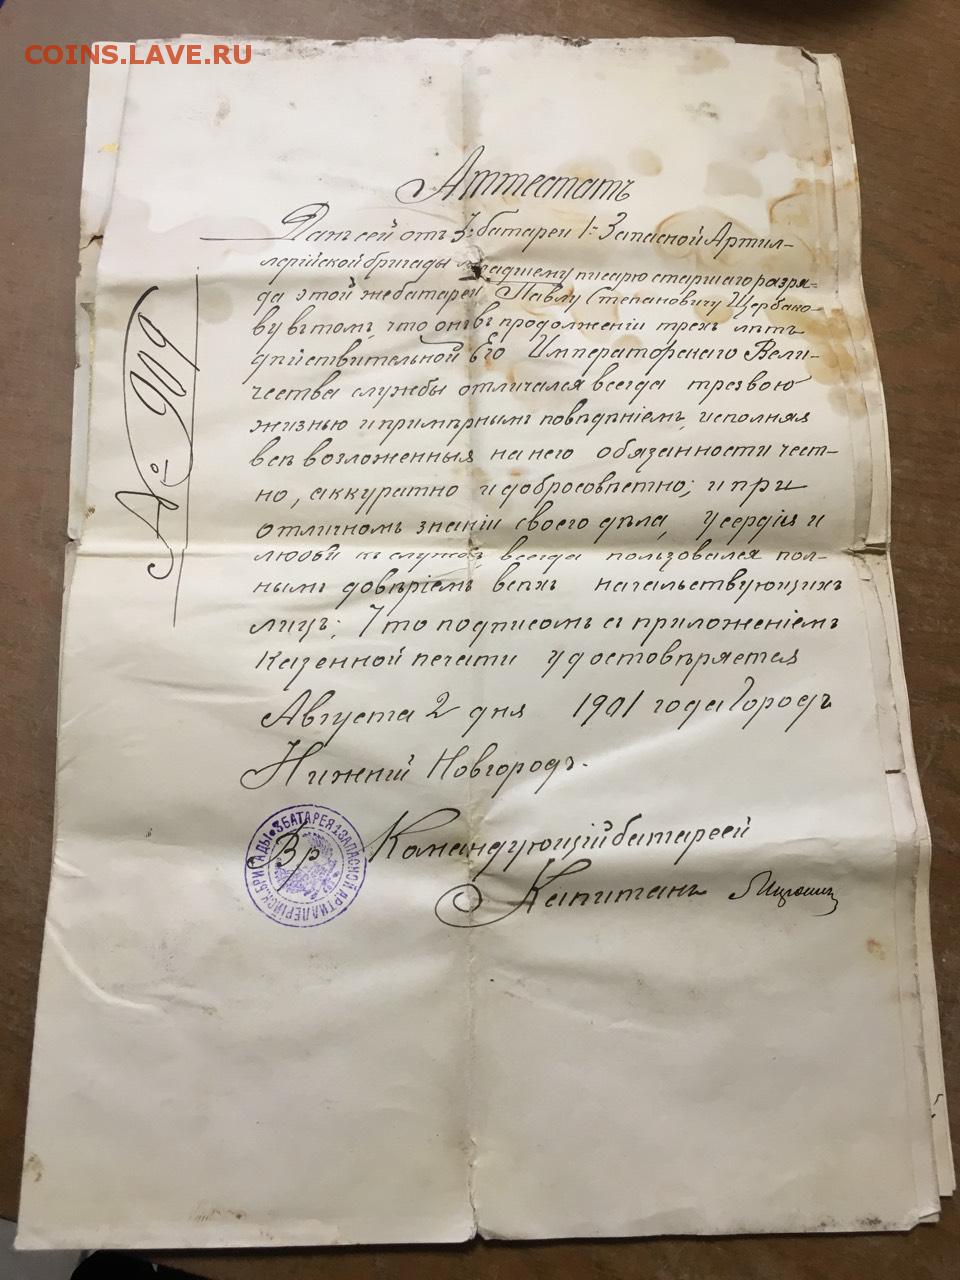 COINS.LAVE.RU
Аттестатъ
Данъ сей отъ 3й батареи 1й Запасной Артил-
лерійской бригады младшему писарю старшаго разря-
да этой же батареи Павлу Степановичу Щербако-
ву въ томъ, что онъ въ продолженіи трехъ лѣтъ
дѣйствительной Его Императорскаго Вели-
чества службы отличался всегда трезвою
жизнью и примѣрнымъ поведѣніемъ, исполняя
всѣ возложенныя на него обязанности чест-
но, аккуратно и добросовѣстно; и при
отличномъ знаніи своего дѣла, усердія и
любви къ службѣ, всегда пользовался пол-
нымъ довѣріемъ всѣхъ начальствующихъ
лицъ; Что подписомъ съ приложеніемъ
казенной печати удостовѣряется
Августа 2 дня 1901 года Городъ
Нижній Новгородъ.
Вр Командующій батареей
Капитанъ
№ 909
3 БАТАРЕЯ 1 ЗАПАСНОЙ АРТИЛЛЕРІЙСК. БРИГАДЫ